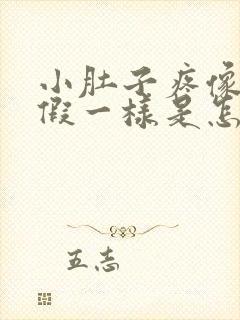 小肚子疼像
假一样是怎
五志